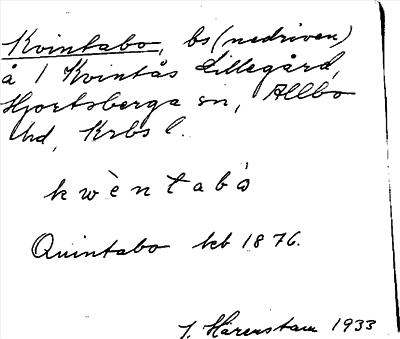 Kvintabo, bs (nedriven)
å 1 Kvintås Lillegård,
Hjortsberga sn, Allbo
hd, Krbs l.
kwèntabå
Quintabo kb 1876.
J. Härenstam 1933